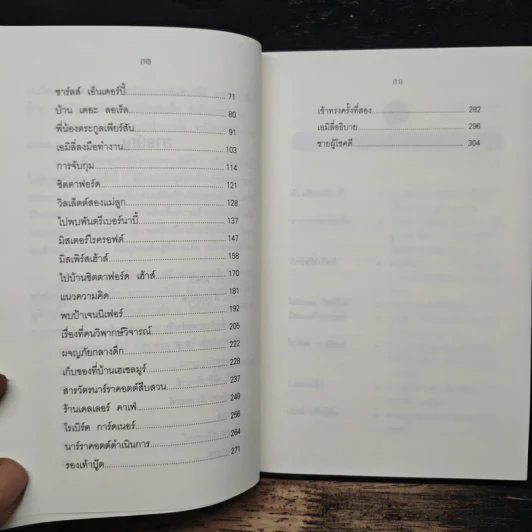 (10)
ชาร์ลส์ เอ็นเดอร์บี้ 71
บ้าน เดอะ ลอเร็ล 80
พี่น้องตระกูลเพียร์สัน 91
เอมิลี่ลงมือทำงาน 103
การจับกุม 114
ซิตตาฟอร์ด 121
วิลเล็ตต์สองแม่ลูก 128
ไปพบพันตรีเบอร์นาบี้ 137
มิสเตอร์ไรครอฟต์ 147
มิสเพิร์สเฮ้าส์ 158
ไปบ้านซิตตาฟอร์ด เฮ้าส์ 170
แนวความคิด 181
พบป้าเจนนิเฟอร์ 192
เรื่องที่คนวิพากษ์วิจารณ์ 205
ผจญภัยกลางดึก 222
เก็บของที่บ้านเฮเซลมูร์ 228
สารวัตรนาร์ราคอตต์สืบสวน 237
ร้านเดลเลอร์ คาเฟ่ 249
โรเบิร์ต การ์ดเนอร์ 256
นาร์ราคอตต์ดำเนินการ 264
รองเท้าบู๊ต 271
(11)
เข้าทรงครั้งที่สอง 282
เอมิลี่อธิบาย 296
ชายผู้โชคดี 304